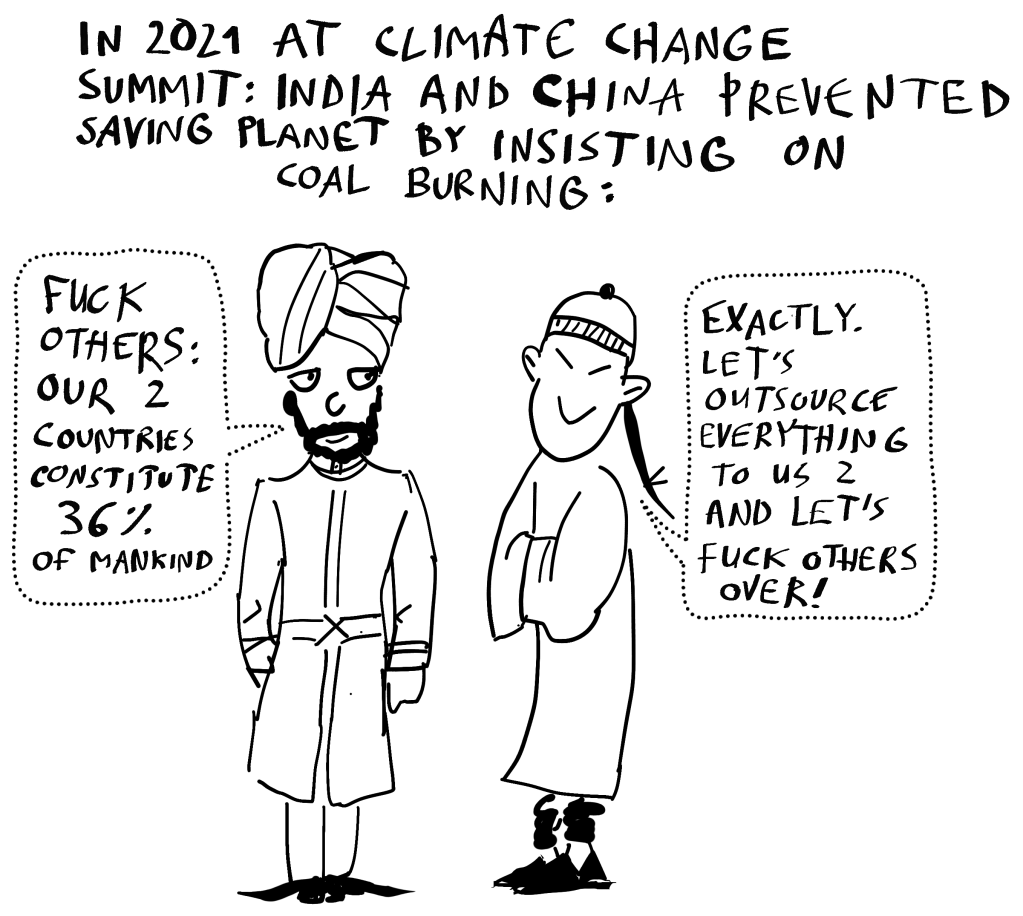 IN 2021 AT CLIMATE CHANGE
SUMMIT: INDIA AND CHINA PREVENTED
SAVING PLANET BY INSISTING ON
COAL BURNING:
FUCK
OTHERS:
OUR 2
COUNTRIES
CONSTITUTE
36%
OF MANKIND
EXACTLY.
LET'S
OUTSOURCE
EVERYTHING
TO US 2
AND LET'S
FUCK OTHERS
OVER!